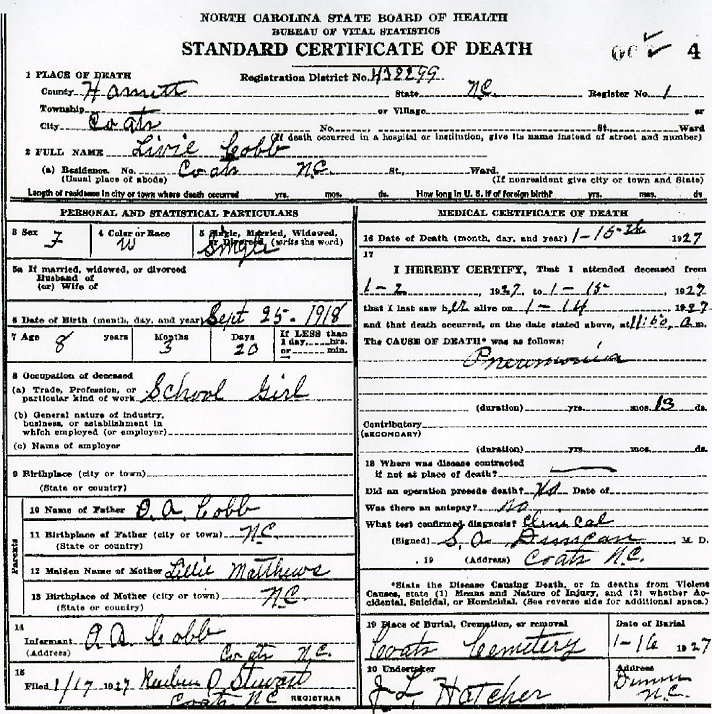 NORTH CAROLINA STATE BOARD OF HEALTH
BUREAU OF VITAL STATISTICS
STANDARD CERTIFICATE OF DEATH
4
1 PLACE OF DEATH
Registration District No. 432299
County Harnett State N.C. Register No. 1
Township or Village or
City Coats No. St., Ward
(If death occurred in a hospital or institution, give its name instead of street and number)
2 FULL NAME Livie Cobb
(a) Residence. No. Coats N.C. St., Ward.
(Usual place of abode) (If nonresident give city or town and State)
Length of residence in city or town where death occurred yrs. mos. ds. How long in U. S. if of foreign birth? yrs. mos. ds
PERSONAL AND STATISTICAL PARTICULARS
3 Sex F 4 Color or Race W 5 Single, Married, Widowed, or Divorced (write the word) Single
5a If married, widowed, or divorced
Husband of
(or) Wife of
6 Date of Birth (month, day, and year) Sept 25 - 1918
7 Age 8 years Months 3 Days 20 If LESS than 1 day, hrs. or min.
8 Occupation of deceased
(a) Trade, Profession, or particular kind of work School Girl
(b) General nature of industry,
business, or establishment in
which employed (or employer)
(c) Name of employer
9 Birthplace (city or town)
(State or country)
Parents
10 Name of Father D. A. Cobb
11 Birthplace of Father (city or town) NC
(State or country)
12 Maiden Name of Mother Lillie Matthews
13 Birthplace of Mother (city or town) N.C.
(State or country)
14
Informant D. A. Cobb
(Address) Coats N.C.
15
Filed 1/17 1927 Reuben P Stewart
Coats NC REGISTRAR
MEDICAL CERTIFICATE OF DEATH
16 Date of Death (month, day, and year) 1-15th 1927
17
I HEREBY CERTIFY, That I attended deceased from
1-2, 1927, to 1-15, 1927
that I last saw her alive on 1-14 1927
and that death occurred, on the date stated above, at 11:50 a.m.
The CAUSE OF DEATH* was as follows:
Pneumonia
(duration) yrs. mos. 13 ds.
Contributory
(SECONDARY)
(duration) yrs. mos. ds.
18 Where was disease contracted
if not at place of death?
Did an operation precede death? No Date of
Was there an autopsy? no
What test confirmed diagnosis? Clinical
(Signed) S. A. Duncan M. D.
, 19 (Address) Coats N.C.
*State the Disease Causing Death, or in deaths from Violent
Causes, state (1) Means and Nature of Injury, and (2) whether Ac-
cidental, Suicidal, or Homicidal. (See reverse side for additional space.)
19 Place of Burial, Cremation, or removal Date of Burial
Coats Cemetery 1-16 1927
20 Undertaker Address
J L Hatcher Dunn N.C.